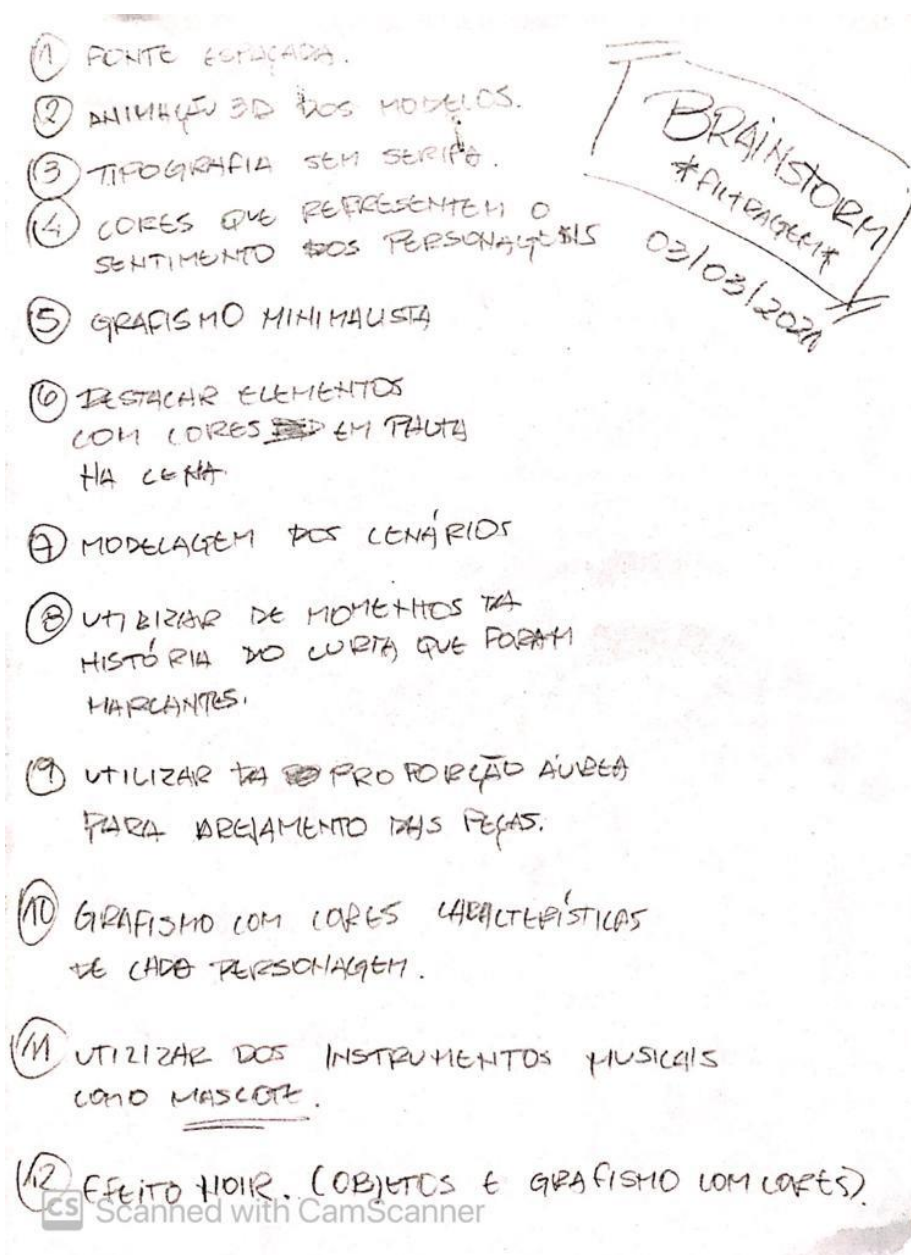 BRAINSTORM
*FILTRAGEM*
03/03/2021
1 FONTE ESPAÇADA.
2 ANIMAÇÃO 3D DOS MODELOS.
3 TIPOGRAFIA SEM SERIFA.
4 CORES QUE REPRESENTEM O
SENTIMENTO DOS PERSONAGENS
5 GRAFISMO MINIMALISTA
6 DESTACAR ELEMENTOS
COM CORES EM PAUTA
NA CENA.
7 MODELAGEM DOS CENÁRIOS
8 UTILIZAR DE MOMENTOS DA
HISTÓRIA DO CURTA QUE FORAM
MARCANTES.
9 UTILIZAR DA PROPORÇÃO ÁUREA
PARA AREJAMENTO DAS PEÇAS.
10 GRAFISMO COM CORES CARACTERÍSTICAS
DE CADA PERSONAGEM.
11 UTILIZAR DOS INSTRUMENTOS MUSICAIS
COMO MASCOTE.
12 EFEITO NOIR. (OBJETOS E GRAFISMO COM CORES).
CS Scanned with CamScanner